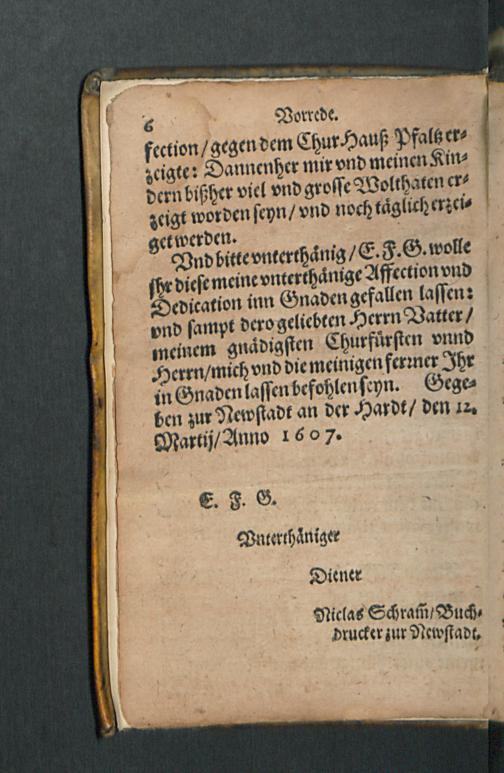 6 Vorrede.
fection / gegen dem Chur Hauß Pfaltz er-
zeigte: Dannenher mir vnd meinen Kin-
dern bißher viel vnd grosse Wolthaten er-
zeigt worden seyn / vnd noch täglich erzei-
get werden.
Vnd bitte vnterthänig / E. F. G. wolle
jhr diese meine vnterthänige Affection vnd
Dedication inn Gnaden gefallen lassen:
vnd sampt dero geliebten Herrn Vatter /
meinem gnädigsten Churfürsten vnnd
Herrn / mich vnd die meinigen ferrner Ihr
in Gnaden lassen befohlen seyn. Gege-
ben zur Newstadt an der Hardt / den 12.
Martij / Anno 1607.
E. F. G.
Vnterthäniger
Diener
Niclas Schram̃ / Buch-
drucker zur Newstadt.